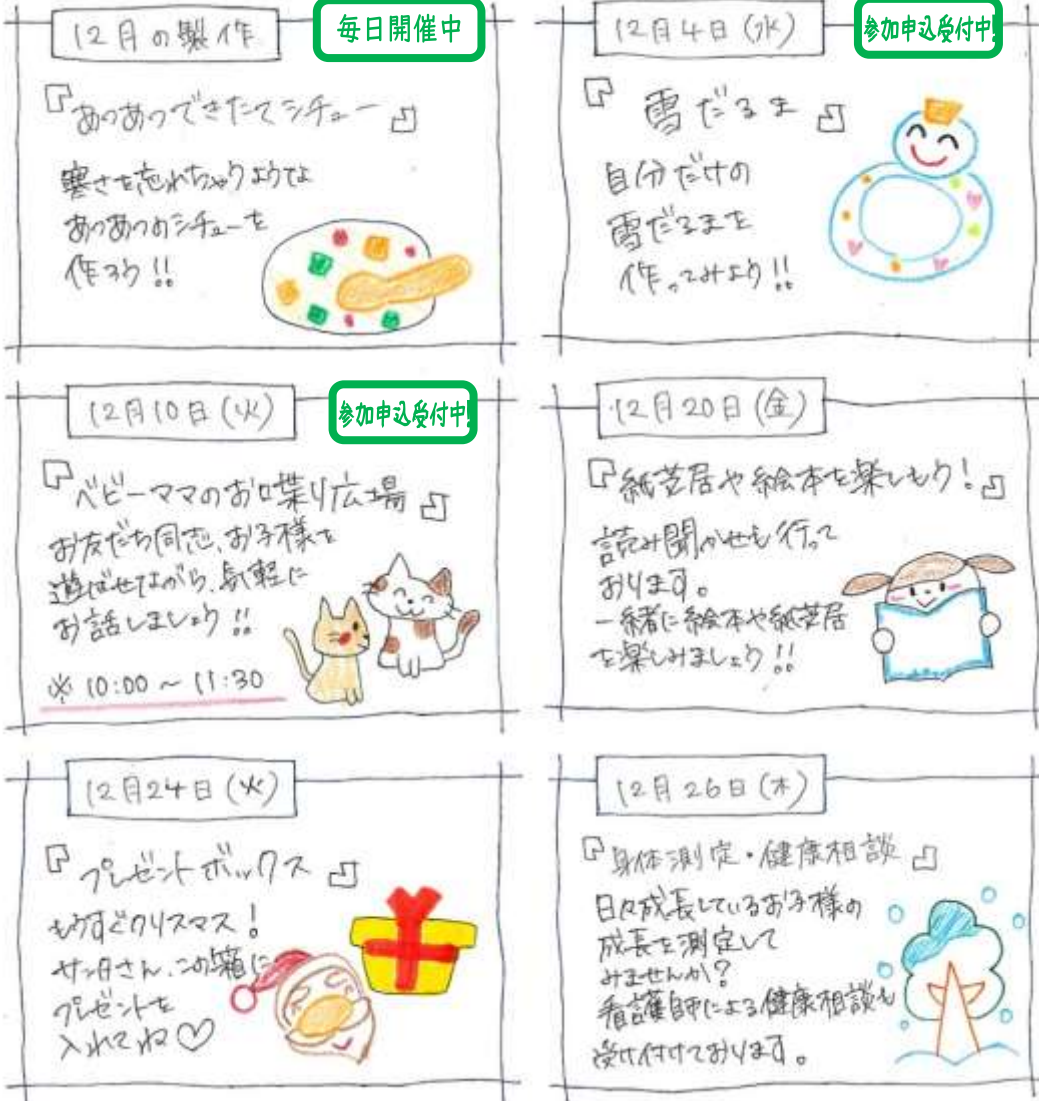 12月の製作
毎日開催中
『あつあつできたてシチュー』
寒さを忘れちゃうような
あつあつのシチューを
作ろう!!
12月4日(水)
参加申込受付中!
『雪だるま』
自分だけの
雪だるまを
作ってみよう!!
12月10日(火)
参加申込受付中!
『ベビーママのお喋り広場』
お友だち同志、お子様を
遊ばせながら、気軽に
お話しましょう!!
※10:00~11:30
12月20日(金)
『紙芝居や絵本を楽しもう!』
読み聞かせも行って
おります。
一緒に絵本や紙芝居
を楽しみましょう!!
12月24日(火)
『プレゼントボックス』
もうすぐクリスマス!
サンタさん、この箱に
プレゼントを
入れてね♡
12月26日(木)
『身体測定・健康相談』
日々成長しているお子様の
成長を測定して
みませんか?
看護師による健康相談も
受け付けております。